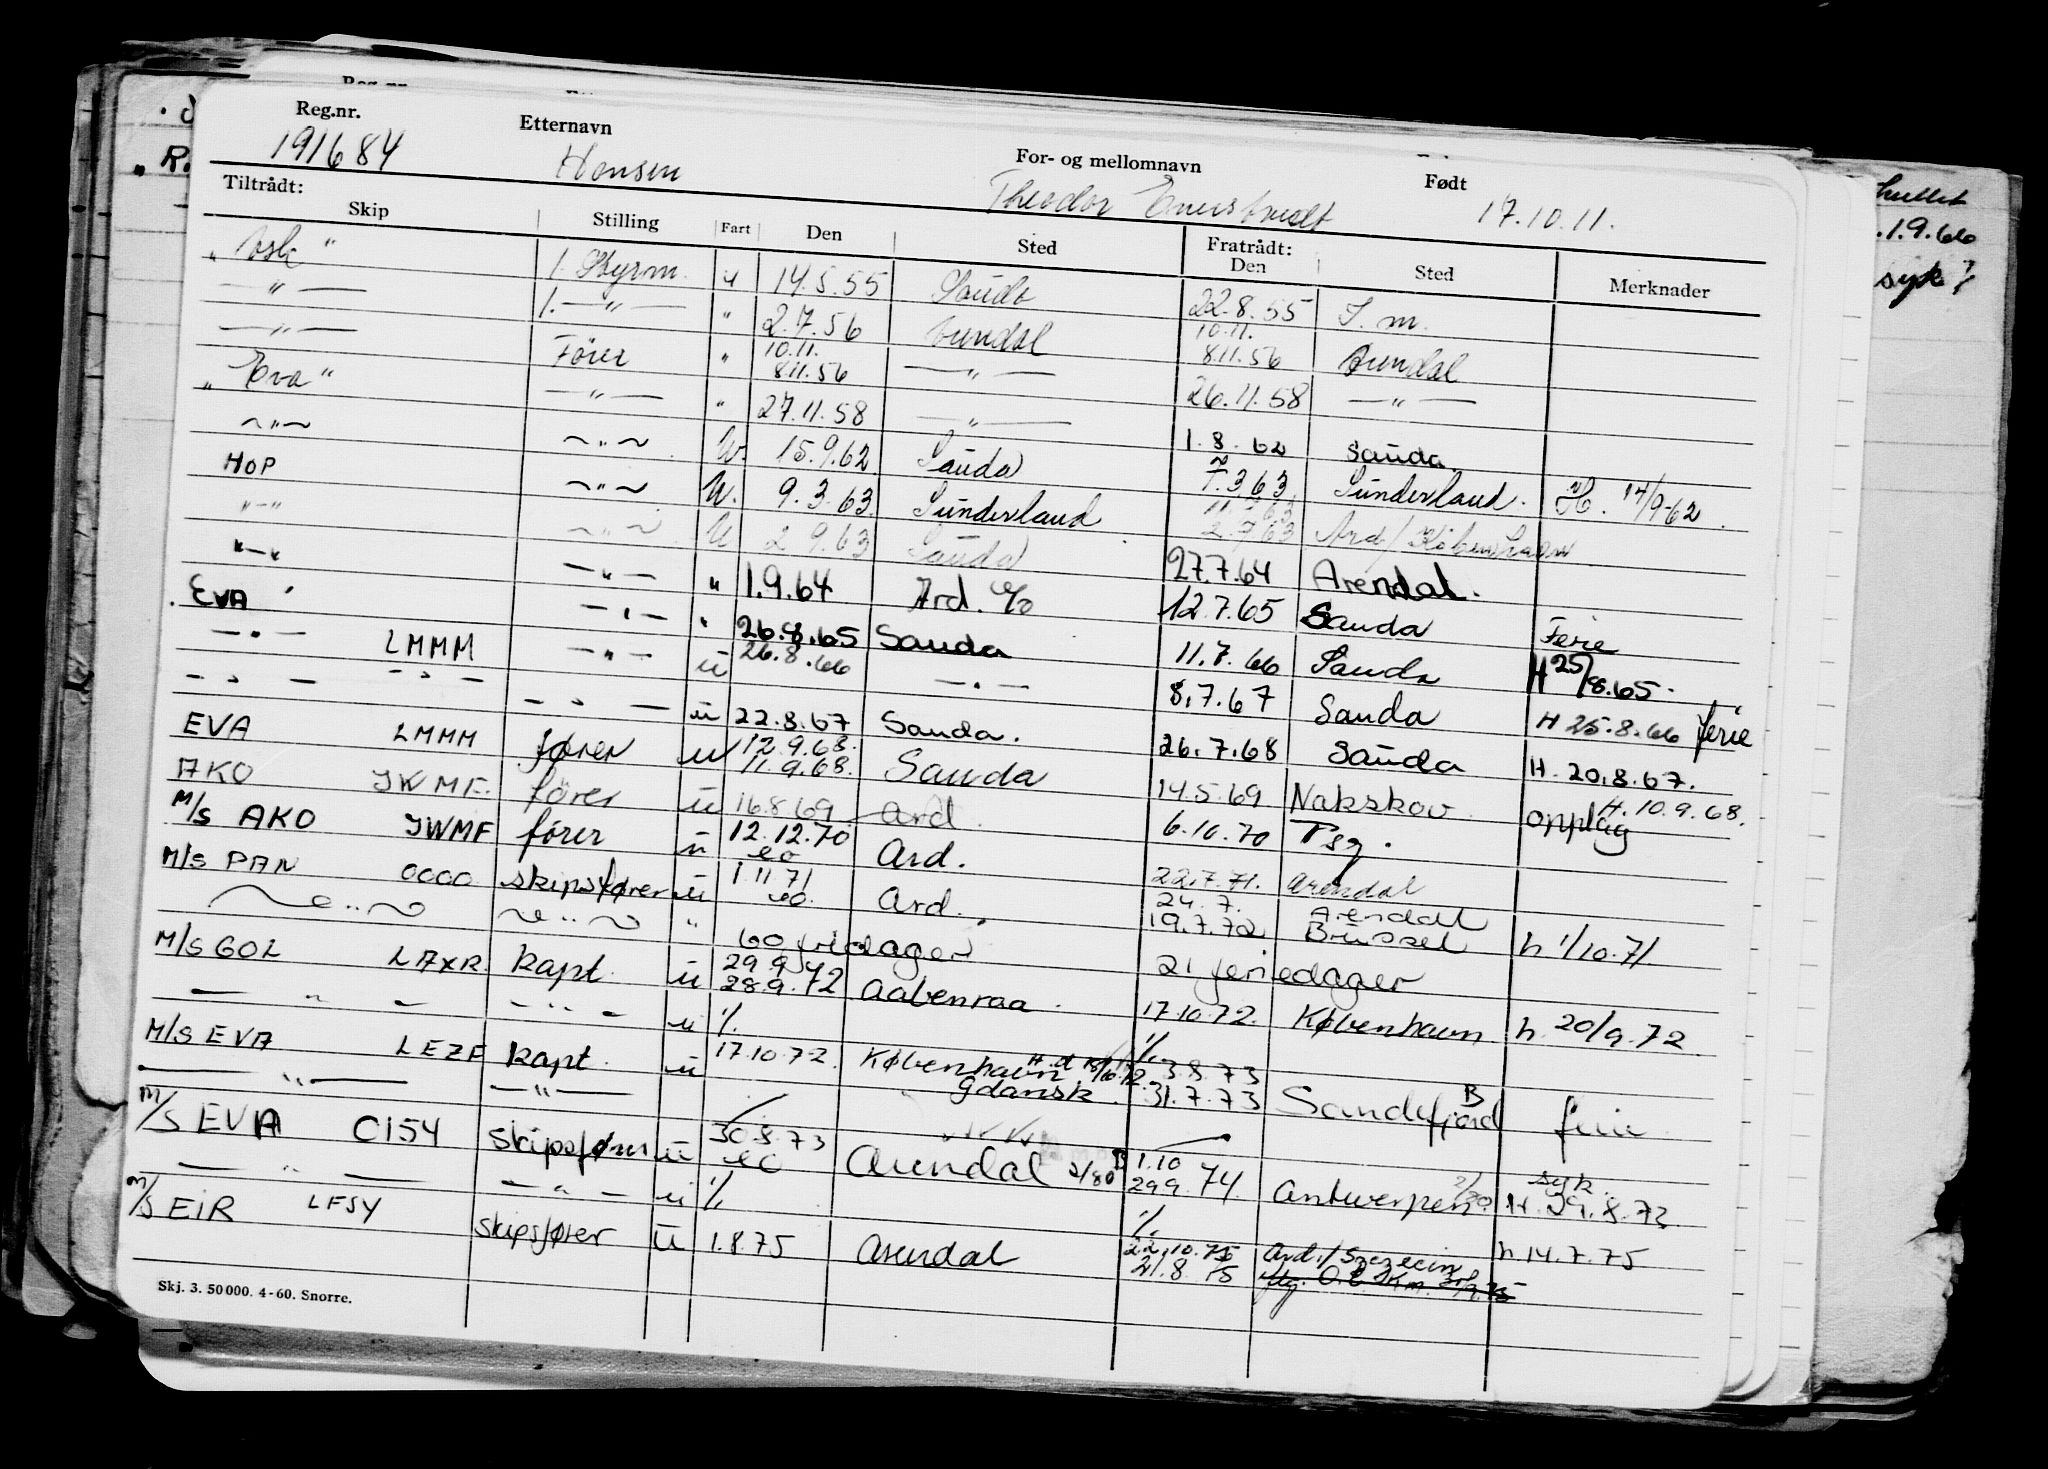 Reg.nr. Etternavn For- og mellomnavn Født
191684 Hansen Theodor 17.10.11.
Tiltrådt: Fratrådt:
Skip Stilling Fart Den Sted Den Sted Merknader
1. Styrm. u 14.5.55 Sauda 22.8.55 S.m.
— " — 1. — " — " 2.7.56 Arendal 10.11. 8.11.56 Arendal
— " — Fører " 10.11. 8.11.56 — " — 26.11.58 — " —
"Eva" — " — " 27.11.58 — " — 1.8.62 Sauda
~ " ~ ~ " ~ U. 15.9.62 Sauda 7.3.63 Sunderland. H. 14/9-62.
HOP ~ " ~ U. 9.3.63 Sunderland 2.7.63 Ard/København
"-" ~ " ~ U 2.9.63 Sauda 27.7.64 Arendal.
"-" — " — " 1.9.64 Ard. 12.7.65 Sauda Ferie
EVA — " — " 26.8.65 Sauda 11.7.66 Sauda H 25/8.65.
— " — LMMM — " — u 26.8.66 — " — 8.7.67 Sauda H 25.8.66 ferie
— " — — " — — " — u 22.8.67 Sauda. 26.7.68 Sauda H. 20.8.67.
EVA LMMM fører u 12.9.68. 11.9.68. Sauda 14.5.69 Nakskov opplag H. 10.9.68.
AKO JWMF. fører u 16.8.69 Ard. 6.10.70 Tsq.
M/S AKO JWMF fører u 12.12.70 eo Ard. 22.7.71. Arendal
M/S PAN OCOO skipsfører u 1.11.71 eo. Ard. 24.7. 19.7.72 Arendal Brüssel h 1/10.71
~ " ~ ~ " ~ " 60 fridager 21 feriedager
M/S GOL LAXR kapt. u 29.9 28.9.72 Aabenraa. 17.10.72. København h. 20/9.72
— " — — " — u % %
M/S EVA LEZF kapt. u 17.10.72 København Gdansk. 3.8.73 31.7.73 Sandefjord B ferie
— " — — " —
M/S EVA CI54 skipsfører u 30.8.73 eo Arendal 2/80 B 1.10 29.9.74. Antwerpen 2/80 syk. H. 29.8.73
— " — — " — u % %
M/S EIR LFSY skipsfører u 1.8.75 Arendal 22.10.75 21.8.75 Ard./Szczecin h 14.7.75
Skj. 3. 50000. 4-60. Snorre.
1.9.66
syk?